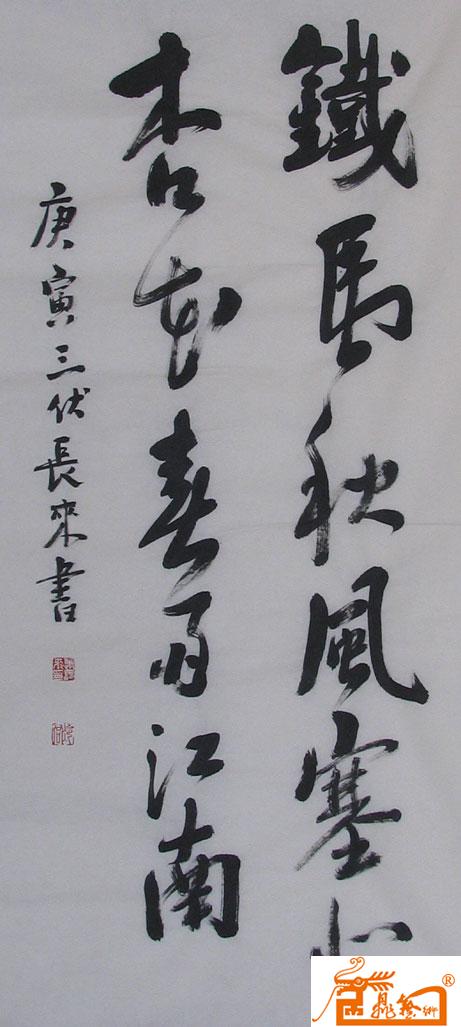 鐵馬秋風塞北
杏花春雨江南
庚寅三伏長來書